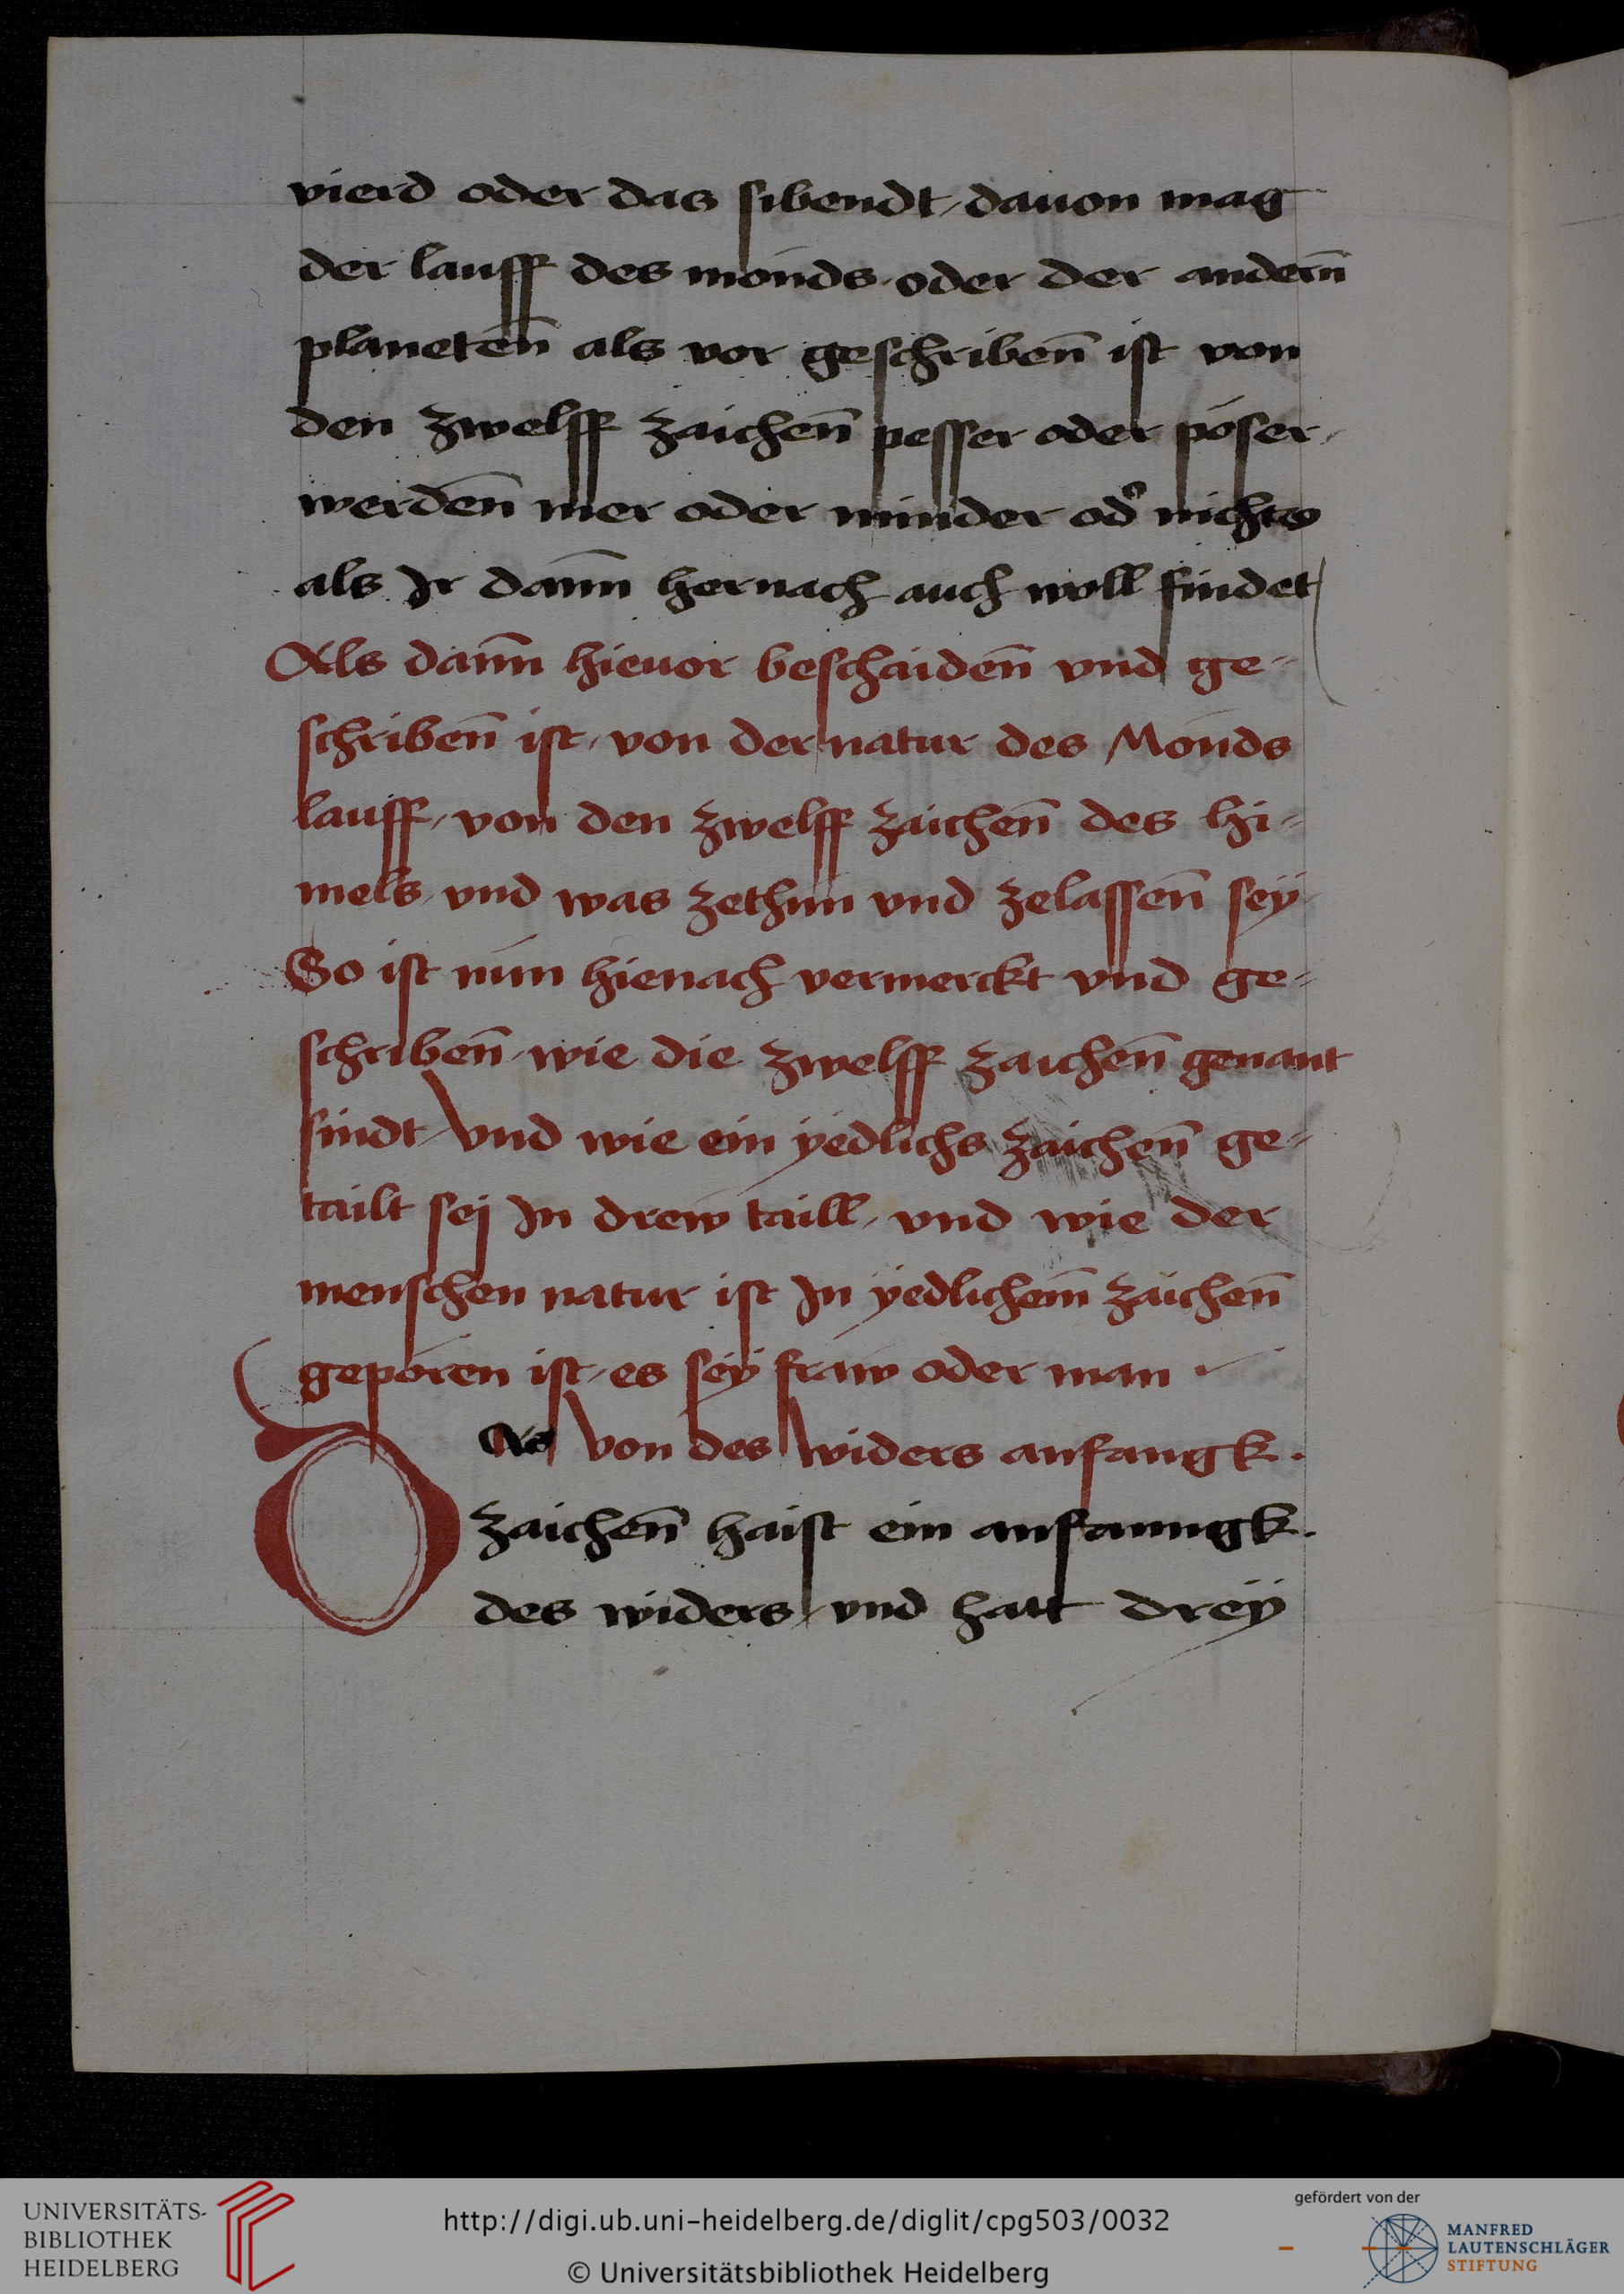 vierd oder das sibendt / dauon mag
der lauff des monds / oder der andern̄
planetēn als vor geschriben̄ ist von
den zwelff zaichen̄ pesser oder pöser /
werden̄ mer oder minder od͛ nichts
als Ir dann̄ hernach auch woll findet /
Als dann̄ hieuor beschaiden̄ vnd ge=
schriben̄ ist / von der natur des Monds
lauff / von den zwelff zaichen̄ des hi=
mels / vnd was zethun vnd zelassen̄ seÿ
So ist nun hienach vermerckt vnd ge=
schriben̄ / wie die zwelff zaichen̄ genant
sindt / vnd wie ein ÿedlichs zaichen̄ ge=
tailt sej In drew taill / vnd wie der
menschen natur ist In ÿedlichem̄ zaichen̄
geporen ist / es seÿ fraw oder man ·
Das von des widers anfangk ·
zaichen̄ haist ein anfanngk ·
des widers / vnd hatt dreÿ
UNIVERSITÄTS-
BIBLIOTHEK
HEIDELBERG
http://digi.ub.uni-heidelberg.de/diglit/cpg503/0032
© Universitätsbibliothek Heidelberg
gefördert von der
MANFRED
LAUTENSCHLÄGER
STIFTUNG